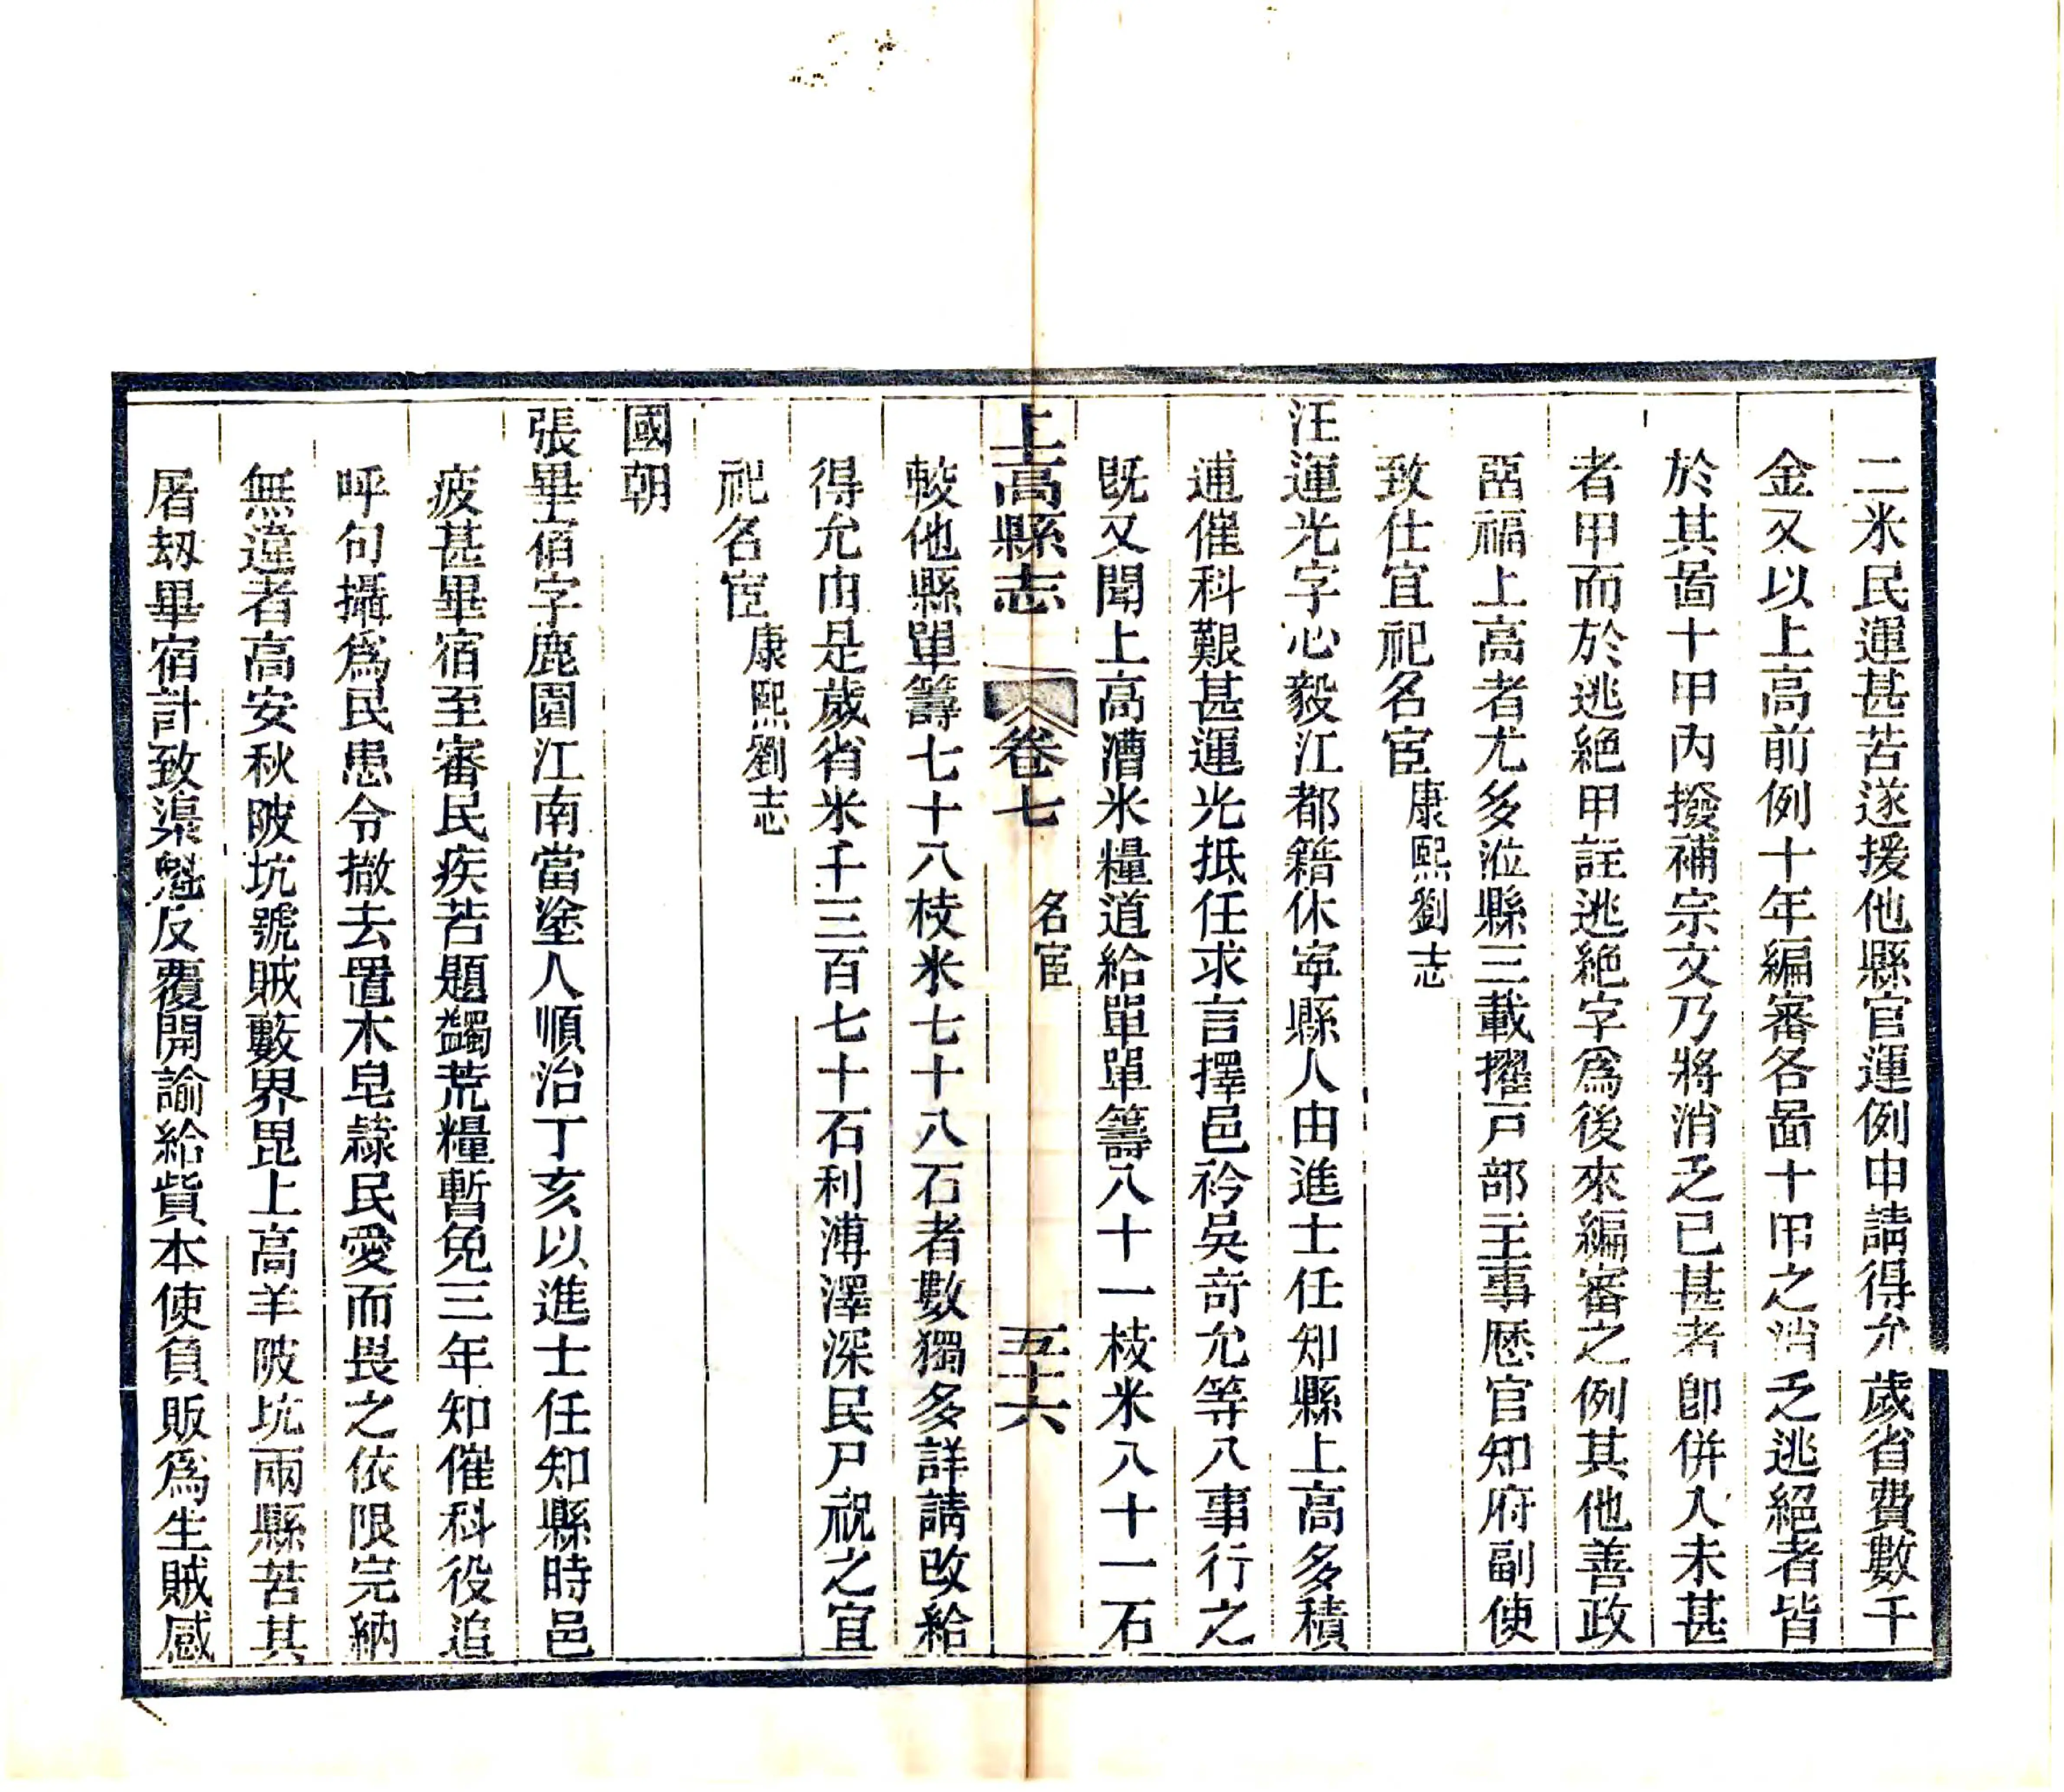 二米民運甚苦遂援他縣官運例申請得允歲省費數千
金又以上高前例十年編審各啚十甲之消乏逃絕者皆
於其啚十甲內撥補宗文乃將消乏已甚者卽併入未甚
者甲而於逃絕甲註逃絕字爲後來編審之例其他善政
畱福上高者尤多涖縣三載擢戸部主事歷官知府副使
致仕宜祀名宦康熙劉志
汪運光字心毅江都籍休寧縣人由進士任知縣上高多積
逋催科艱甚運光抵任求言擇邑衿吳奇允等八事行之
既又聞上高漕米糧道給單單籌八十一枝米八十一石
上高縣志 卷七 名宦 五十六
較他縣單籌七十八枝米七十八石者數獨多詳請改給
得允由是歲省米千三百七十石利溥澤深民尸祝之宜
祀名宦康熙劉志
國朝
張畢宿字鹿園江南當塗人順治丁亥以進士任知縣時邑
疲甚畢宿至審民疾苦題蠲荒糧暫免三年知催科役追
呼句攝爲民患令撤去置木皂隸民愛而畏之依限完納
無違者高安秋陂坑號賊藪界毘上高羊陂坑兩縣苦其
屠刼畢宿計致渠魁反覆開諭給貲本使負販爲生賊感